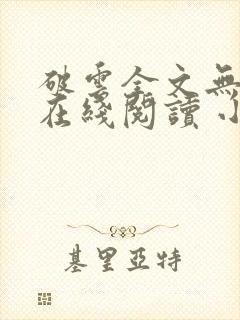 破雲全文無
在綫閱讀 小
基里亞特